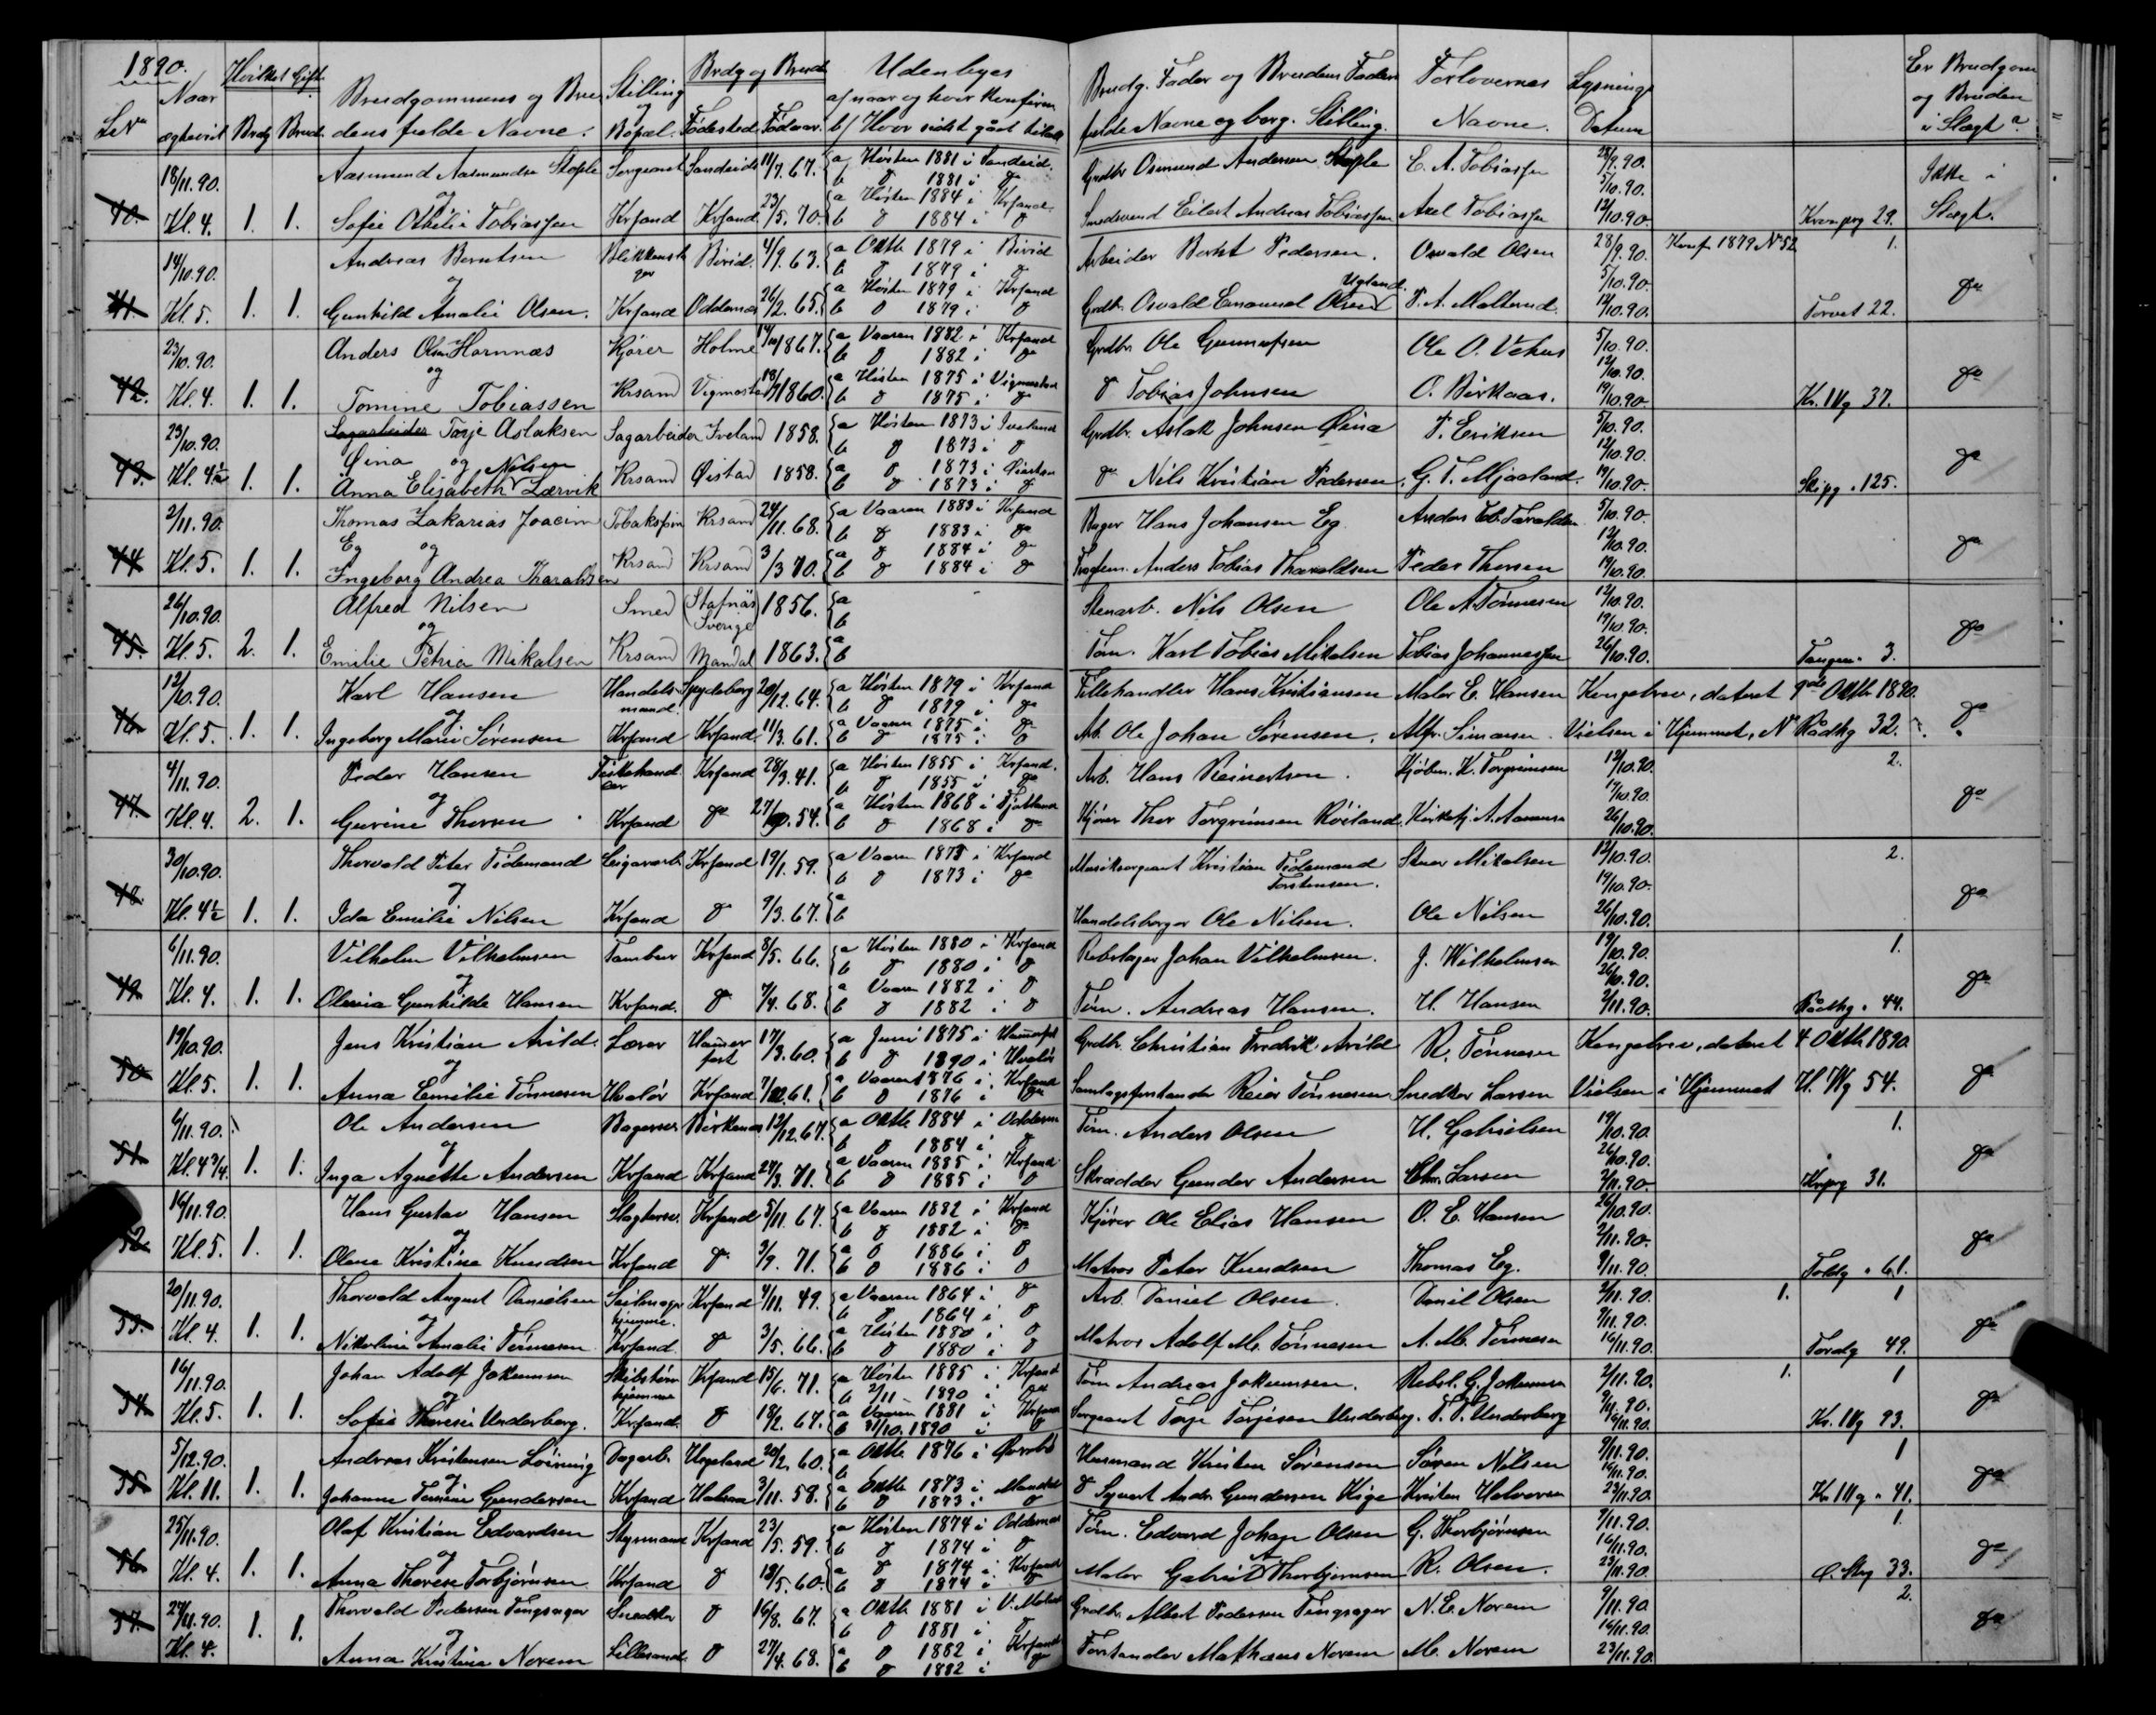 1890.
LNo Naar ægteviet Hvilket Gift. Brdg Brud. Brudgommens og Brudens fulde Navne. Stilling og Bopæl. Brdg og Bruds Fødested. Fødeaar. Udenbyes a/ naar og hvor Konfirm b/ Hvor sidst gået tilalt
Brudg. Fader og Brudens Fader fulde Navne og borg. Stilling. Forlovernes Navne. Lysnings Datum Er Brudgom og Bruden i Slægt?
18/11.90. Aasmund Aasmundsen Stople Sergeant Sandeid 11/9.67. a Høsten 1881 i Sandeid. Grdbr Osmund Andersen Stople E. A. Tobiassen 28/9.90. Ikke i
og b do 1881 i do 5/10.90.
40. Kl. 4. 1. 1. Sofie Othilie Tobiassen Krsand Krsand 23/5.70. a Høsten 1884 i Krsand b do 1884 i do Smedsvend Eilert Andreas Tobiassen Axel Tobiassen 12/10.90. Kronprg 29. Slægt.
14/10.90. Andreas Berntsen Blikkensl. Birid. 4/9.63. a Oktb 1879 i Birid b do 1879 i do Arbeider Bernt Pedersen. Osvald Olsen 28/9.90. Konf. 1879 No 52 1.
og 5/10.90.
41. Kl. 5. 1. 1. Gunhild Amalie Olsen. Krsand Oddernes 26/2.65. a Høsten 1879 i Krsand b do 1879 i do Grdb. Osvald Emanuel Olsen Ugland. P. A. Molterud. 12/10.90. Torvet 22. do
23/10.90. Anders Olsen Hornnæs Kjører Holme 14/10 1867. a Vaaren 1882 i Krsand b do 1882 i do Grdbr. Ole Gunnufsen Ole O. Vehus 5/10.90.
og 12/10.90.
42. Kl. 4. 1. 1. Tomine Tobiassen Krsand Vigmostad 18/7 1860. a Høsten 1875 i Vigmostad b do 1875 i do do Tobias Johnsen O. Birkaas. 19/10.90. Kr. IVg 37. do
23/10.90. Sagarbeider Tarje Aslaksen Sagarbeider Iveland 1858. a Høsten 1873 i Iveland b do 1873 i do Grdbr. Aslak Johnsen Øina P. Eriksen 5/10.90.
Øina og Nilsen 12/10.90.
43. Kl. 4½ 1. 1. Anna Elisabeth Lærvik Krsand Øistad 1858. a do 1873 i Øiestad b do 1873 i do do Nils Kristian Pedersen G. T. Mjaaland. 19/10.90. Skipg. 125. do
2/11.90. Thomas Zakarias Joacim Tobakspin Krsand 24/11.68. a Vaaren 1883 i Krsand b do 1883 i do Bager Hans Johansen Eg. Anders Tob. Taraldsen 5/10.90.
Eg og 12/10.90.
44. Kl. 5. 1. 1. Ingeborg Andrea Tharaldsen Krsand Krsand 3/3 70. a do 1884 i do b do 1884 i do Anders Tobias Tharaldsen Peder Thorsen 19/10.90. do
26/10.90. Alfred Nilsen Smed (Stafnäs Sverige) 1856. a b Stenarb. Nils Olsen Ole A Tønnesen 12/10.90.
og 19/10.90.
45. Kl. 5. 2. 1. Emilie Petria Mikalsen Krsand Mandal 1863. a b Tøm. Karl Tobias Mikalsen Tobias Johannessen 26/10.90. Tangen. 3. do
12/10.90. Karl Hansen Handelsmand. Spydeberg 20/12.64. a Høsten 1879 i Krsand b do 1879 i do Fillehandler Hans Kristiansen Maler E. Hansen Kongebrev, dateret 9de Oktb 1890.
og
46. Kl. 5. 1. 1. Ingeborg Marie Sørensen Krsand Krsand 11/3.61. a Vaaren 1875 i do b do 1875 i do Arb. Ole Johan Sørensen. Alfr. Simonsen. Vielsen i Hjemmet, No Rådhg 32. do
4/11.90. Peder Hansen Fiskehandler Krsand 28/3.41. a Høsten 1855 i Krsand. b do 1855 i do Arb. Hans Reinertsen. Kjøbm. K. Torgrimsen 12/10.90. 2.
og 19/10.90.
47. Kl. 4. 2. 1. Gurine Thorsen Krsand do 27/10.54. a Høsten 1868 i Fjotland b do 1868 i do Kjører Thor Torgrimsen Røiland. Kirketj. A. Aanensen 26/10.90. do
30/10.90. Thorvald Peter Tidemand Sigararb. Krsand 19/1.59. a Vaaren 1873 i Krsand b do 1873 i do Musiksergeant Kristian Tidemand Torstensen. Steen Mikalsen 12/10.90. 2.
og 19/10.90.
48. Kl. 4½ 1. 1. Ida Emilie Nilsen Krsand do 9/3.67. a b Handelsborger Ole Nilsen. Ole Nilsen 26/10.90. do
6/11.90. Vilhelm Vilhelmsen Tambur Krsand 8/5.66. a Høsten 1880 i Krsand b do 1880 i do Rebslager Johan Vilhelmsen. J. Wilhelmsen 19/10.90. 1.
og 26/10.90.
49. Kl. 4. 1. 1. Olevia Gunhilde Hansen Krsand. do 7/4.68. a Vaaren 1882 i do b do 1882 i do Tøm. Andreas Hansen. H. Hansen 2/11.90. Rådhg. 44. do
19/10.90. Jens Kristian Arild. Lærer Hammerfest 17/3.60. a Juni 1875 i Hammerfest b do 1890 i Hvaløs Grdbr. Christian Fredrik Arild R. Tønnesen Kongebrev, dateret 4 Oktb 1890.
og
50. Kl. 5. 1. 1. Anna Emilie Tønnesen Hvaløs Krsand 7/12.61. a Vaaren 1876 i Krsand b do 1876 i do Samlagsforstander Reier Tønnesen Snedker Larsen Vielsen i Hjemmet H. IVg 54. do
6/11.90. Ole Andersen Bagersv. Birkenes 12/12.67. a Oktb 1884 i Oddernes b do 1884 i do Tøm. Anders Olsen H. Gabrielsen 19/10.90. 1.
og 26/10.90.
51. Kl. 4¾. 1. 1. Inga Agnethe Andersen Krsand Krsand 27/3.71. a Vaaren 1885 i Krsand b do 1885 i do Skrædder Gunder Andersen Chr. Larsen 2/11.90. Krprg 31. do
16/11.90. Hans Gustav Hansen Slagtersv. Krsand 5/11.67. a Vaaren 1882 i Krsand b do 1882 i do Kjører Ole Elias Hansen O. E. Hansen 26/10.90.
og 2/11.90.
52. Kl. 5. 1. 1. Olene Kristine Knudsen Krsand do 3/9.71. a do 1886 i do b do 1886 i do Matros Peter Knudsen Thomas Eg. 9/11.90. Toldg. 61. do
20/11.90. Thorvald August Danielsen Seilmager hjemme. Krsand 4/11.49. a Vaaren 1864 i do b do 1864 i do Arb. Daniel Olsen. Daniel Olsen 2/11.90. 1. 1
og 9/11.90.
53. Kl. 4. 1. 1. Nikoline Amalie Tønnesen Krsand. do 3/5.66. a Høsten 1880 i do b do 1880 i do Matros Adolf M. Tønnesen A. M. Tønnesen 16/11.90. Tordg 49. do
16/11.90. Johan Adolf Jokumsen Skibstøm hjemme Krsand 15/6.71. a Høsten 1885 i Krsand b 2/11 1890 i do Tøm Andreas Jokumsen. Rebsl. G. Jokumsen 2/11.90. 1. 1
og 9/11.90.
54. Kl. 5. 1. 1. Sofie Therese Underberg. Krsand. do 18/2.67. a Vaaren 1881 i Krsand b 31/10.1890 i do Sergeant Torje Torjesen Underberg. T. T. Underberg 16/11.90. Kr. IVg 93. do
5/12.90. Andreas Kristensen Løining Dagarb. Hægeland 20/2.60. a Oktb 1876 i Øvrebø b Husmand Kristen Sørensen Søren Nilsen 9/11.90. 1
og 16/11.90.
55. Kl. 11. 1. 1. Johanne Tomine Gundersen Krsand Halsaa 3/11.58. a Oktb 1873 i Mandal b do 1873 i do do Syvert Andr. Gundersen Kige Kristen Halvorsen 23/11.90. Kr IIIg. 41. do
25/11.90. Olaf Kristian Edvardsen Styrmand Krsand 23/5.59. a Høsten 1874 i Oddernes b do 1874 i do Tøm. Edvard Johan Olsen G. Thorbjørnsen 9/11.90. 1.
og 16/11.90.
56. Kl. 4. 1. 1. Anna Therese Torbjørnsen Krsand do 13/5.60. a do 1874 i Krsand b do 1874 i do Maler Gabriel A Thorbjørnsen R. Olsen. 23/11.90. Ø. Stg 33. do
27/11.90. Thorvald Pedersen Tingsager Snedker do 16/8.67. a Oktb 1881 i V. Moland b do 1881 i do Grdbr. Albert Pedersen Tingsager N. E. Norem 9/11.90 2.
og 16/11.90.
57. Kl. 4. 1. 1. Anna Kristine Norem Lillesand. do 27/4.68. a do 1882 i Krsand b do 1882 i do Forstander Mathæus Norem M. Norem 23/11.90. do